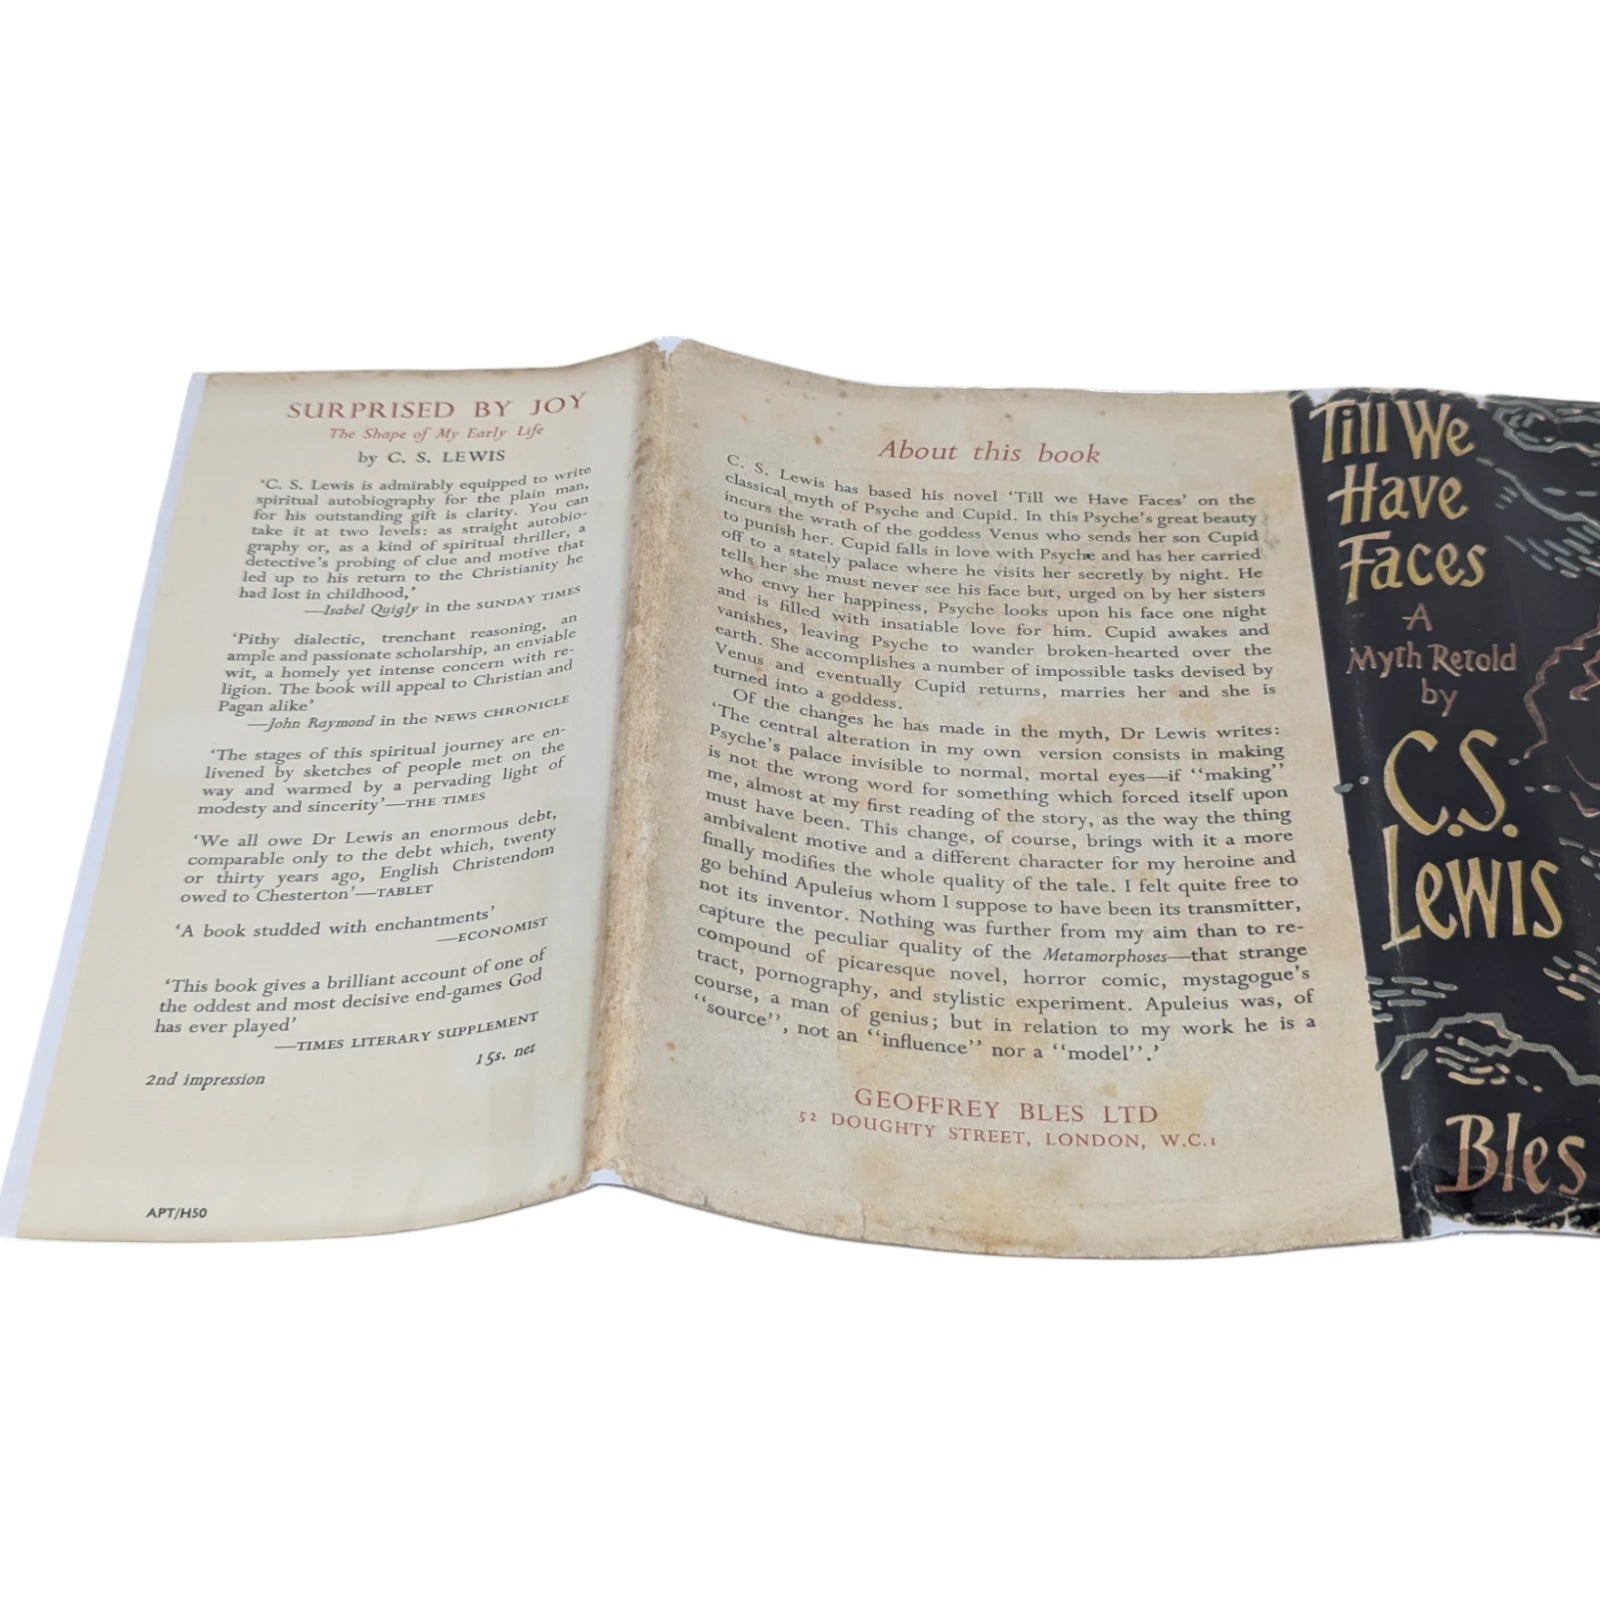 SURPRISED BY JOY
The Shape of My Early Life
by C. S. LEWIS
'C. S. Lewis is admirably equipped to write
spiritual autobiography for the plain man,
for his outstanding gift is clarity. You can
take it at two levels: as straight autobio-
graphy or, as a kind of spiritual thriller, a
detective's probing of clue and motive that
led up to his return to the Christianity he
had lost in childhood,'
—Isabel Quigly in the SUNDAY TIMES
'Pithy dialectic, trenchant reasoning, an
ample and passionate scholarship, an enviable
wit, a homely yet intense concern with re-
ligion. The book will appeal to Christian and
Pagan alike'
—John Raymond in the NEWS CHRONICLE
'The stages of this spiritual journey are en-
livened by sketches of people met on the
way and warmed by a pervading light of
modesty and sincerity'—THE TIMES
'We all owe Dr Lewis an enormous debt,
comparable only to the debt which, twenty
or thirty years ago, English Christendom
owed to Chesterton'—TABLET
'A book studded with enchantments'
—ECONOMIST
'This book gives a brilliant account of one of
the oddest and most decisive end-games God
has ever played'
—TIMES LITERARY SUPPLEMENT
15s. net
2nd impression
APT/H50
About this book
C. S. Lewis has based his novel 'Till we Have Faces' on the
classical myth of Psyche and Cupid. In this Psyche's great beauty
incurs the wrath of the goddess Venus who sends her son Cupid
to punish her. Cupid falls in love with Psyche and has her carried
off to a stately palace where he visits her secretly by night. He
tells her she must never see his face but, urged on by her sisters
who envy her happiness, Psyche looks upon his face one night
and is filled with insatiable love for him. Cupid awakes and
vanishes, leaving Psyche to wander broken-hearted over the
earth. She accomplishes a number of impossible tasks devised by
Venus and eventually Cupid returns, marries her and she is
turned into a goddess.
Of the changes he has made in the myth, Dr Lewis writes:
'The central alteration in my own version consists in making
Psyche's palace invisible to normal, mortal eyes—if "making"
is not the wrong word for something which forced itself upon
me, almost at my first reading of the story, as the way the thing
must have been. This change, of course, brings with it a more
ambivalent motive and a different character for my heroine and
finally modifies the whole quality of the tale. I felt quite free to
go behind Apuleius whom I suppose to have been its transmitter,
not its inventor. Nothing was further from my aim than to re-
capture the peculiar quality of the Metamorphoses—that strange
compound of picaresque novel, horror comic, mystagogue's
tract, pornography, and stylistic experiment. Apuleius was, of
course, a man of genius; but in relation to my work he is a
"source", not an "influence" nor a "model".'
GEOFFREY BLES LTD
52 DOUGHTY STREET, LONDON, W.C.1
Till We
Have
Faces
A
Myth Retold
by
C.S.
Lewis
Bles